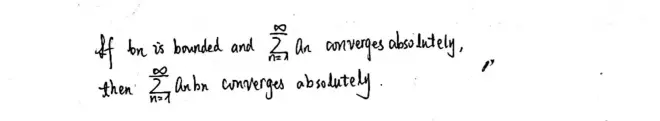 If bn is bounded and ∞∑n=1 an converges absolutely,
then ∞∑n=1 anbn converges absolutely.